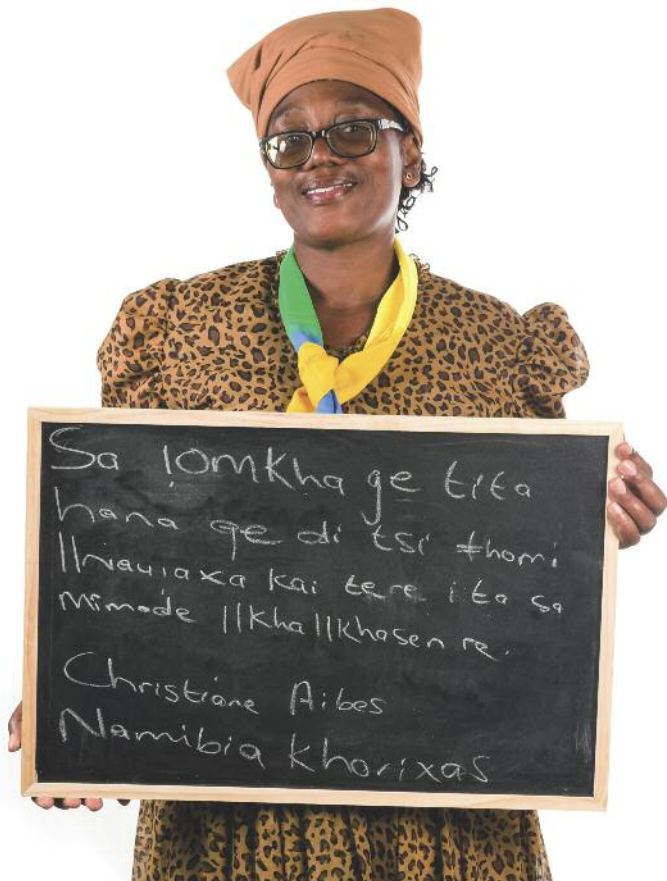 Sa !omkha ge tita
hana ge di tsi ǂhomi
ǁnau!axa kai tere i ta sa
Mîmade ǁkhaǁkhasen re.
Christiane Aibes
Namibia Khorixas